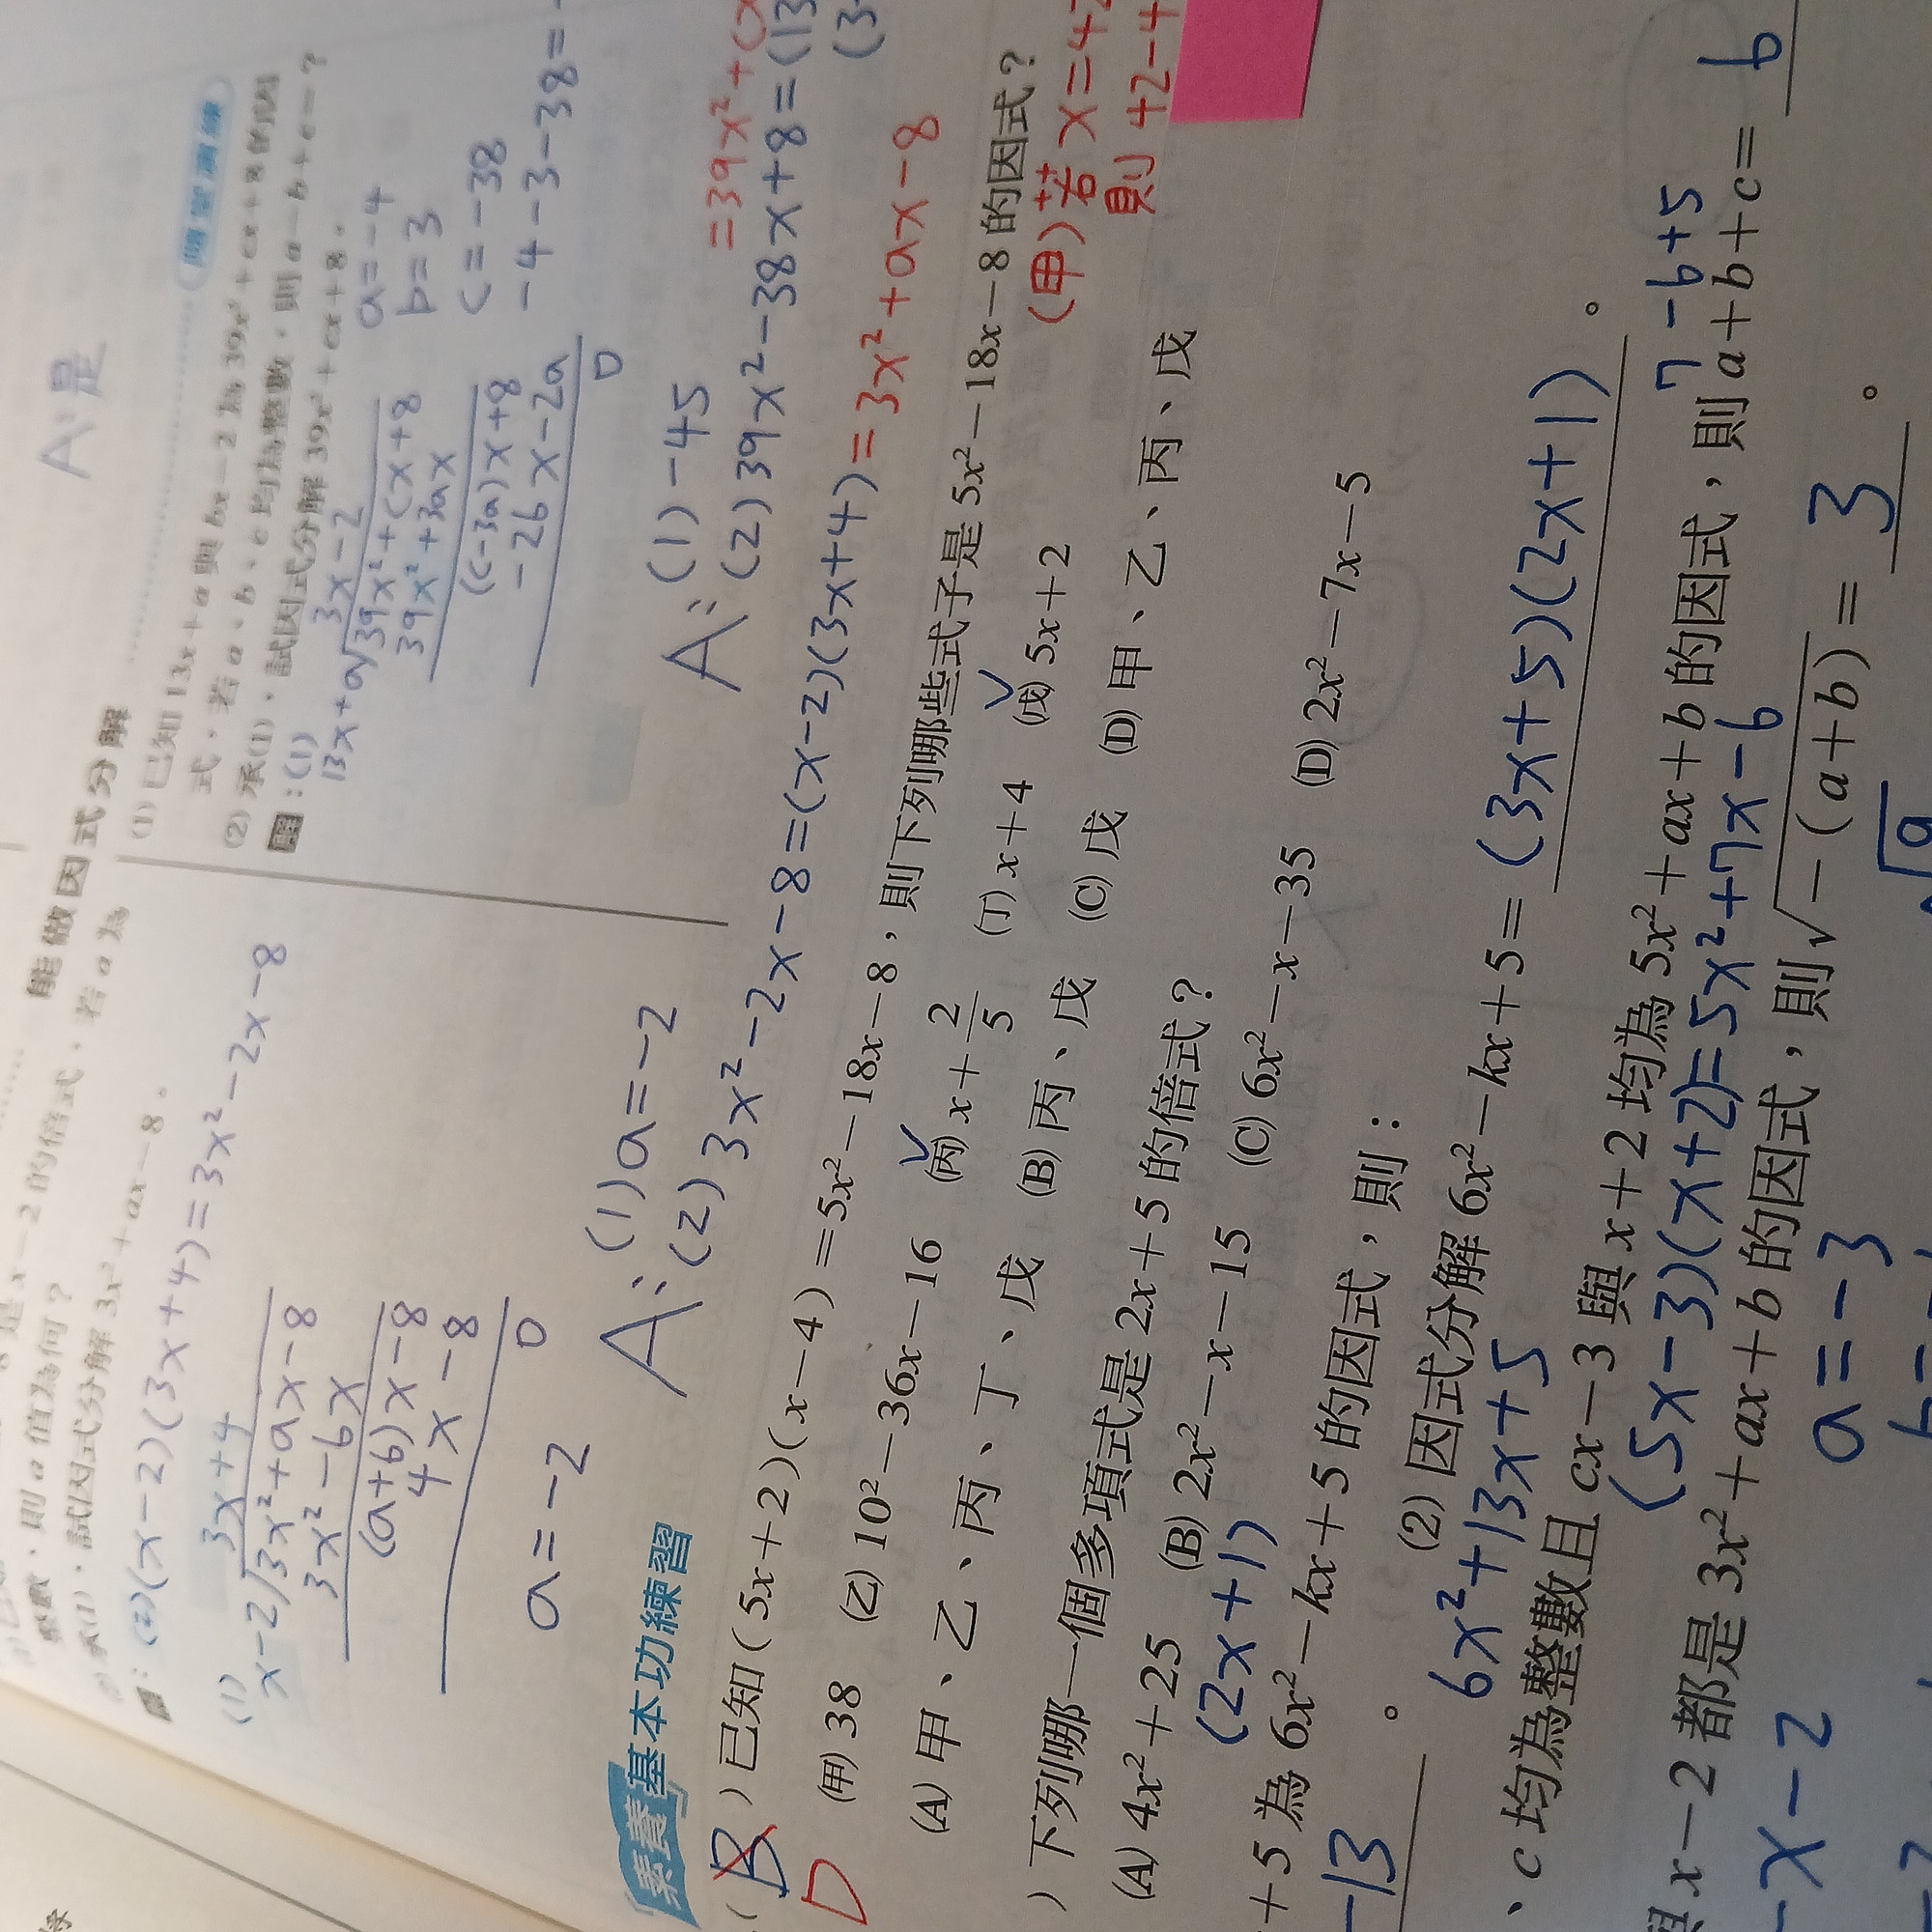 A:是
能做因式分解
是 x-2 的倍式,若 a 為
數,則 a 值為何?
承(1),試因式分解 3x²+ax-8。
解:(2)(x-2)(3x+4)=3x²-2x-8
(1)
3x+4
x-2√3x²+ax-8
3x²-6x
(a+6)x-8
4x-8
0
a=-2
A:(1)a=-2
(2)3x²-2x-8=(x-2)(3x+4)=3x²+ax-8
(1) 已知 13x+a 與 bx-2 為 39x²+cx+8 的因
式,若 a、b、c 均為整數,則 a-b+c=?
(2) 承(1),試因式分解 39x²+cx+8。
解:(1)
3x-2
13x+a√39x²+cx+8
39x²+3ax
(c-3a)x+8
-26x-2a
0
a=-4
b=3
c=-38
-4-3-38=
A:(1)-45
(2)39x²-38x+8=(13
=39x²+(x
(3
素養 基本功練習
( B D )已知(5x+2)(x-4)=5x²-18x-8,則下列哪些式子是 5x²-18x-8 的因式?
(甲) 38 (乙) 10²-36x-16 (丙) x+2/5 (丁) x+4 (戊) 5x+2
(甲)若x=42
則42-4
(A) 甲、乙、丙、丁、戊 (B) 丙、戊 (C) 戊 (D) 甲、乙、丙、戊
)下列哪一個多項式是 2x+5 的倍式?
(A) 4x²+25 (B) 2x²-x-15 (C) 6x²-x-35 (D) 2x²-7x-5
(2x+1)
+5 為 6x²-kx+5 的因式,則:
-13 。 (2) 因式分解 6x²-kx+5= (3x+5)(2x+1) 。
6x²+13x+5
、c 均為整數且 cx-3 與 x+2 均為 5x²+ax+b 的因式,則 a+b+c= 6
7-6+5
(5x-3)(x+2)=5x²+7x-6
與 x-2 都是 3x²+ax+b 的因式,則 √-(a+b) = 3 。
-x-2
a=-3
√9